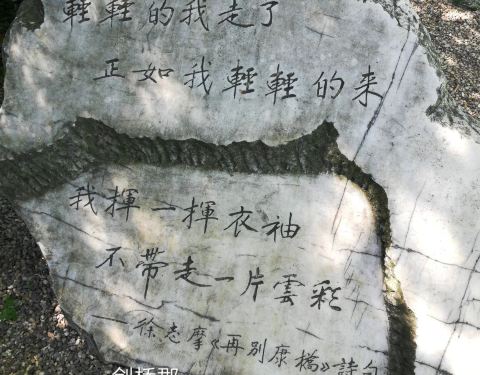 輕輕的我走了
正如我輕輕的来
我揮一揮衣袖
不帶走一片雲彩
徐志摩《再別康橋》詩句